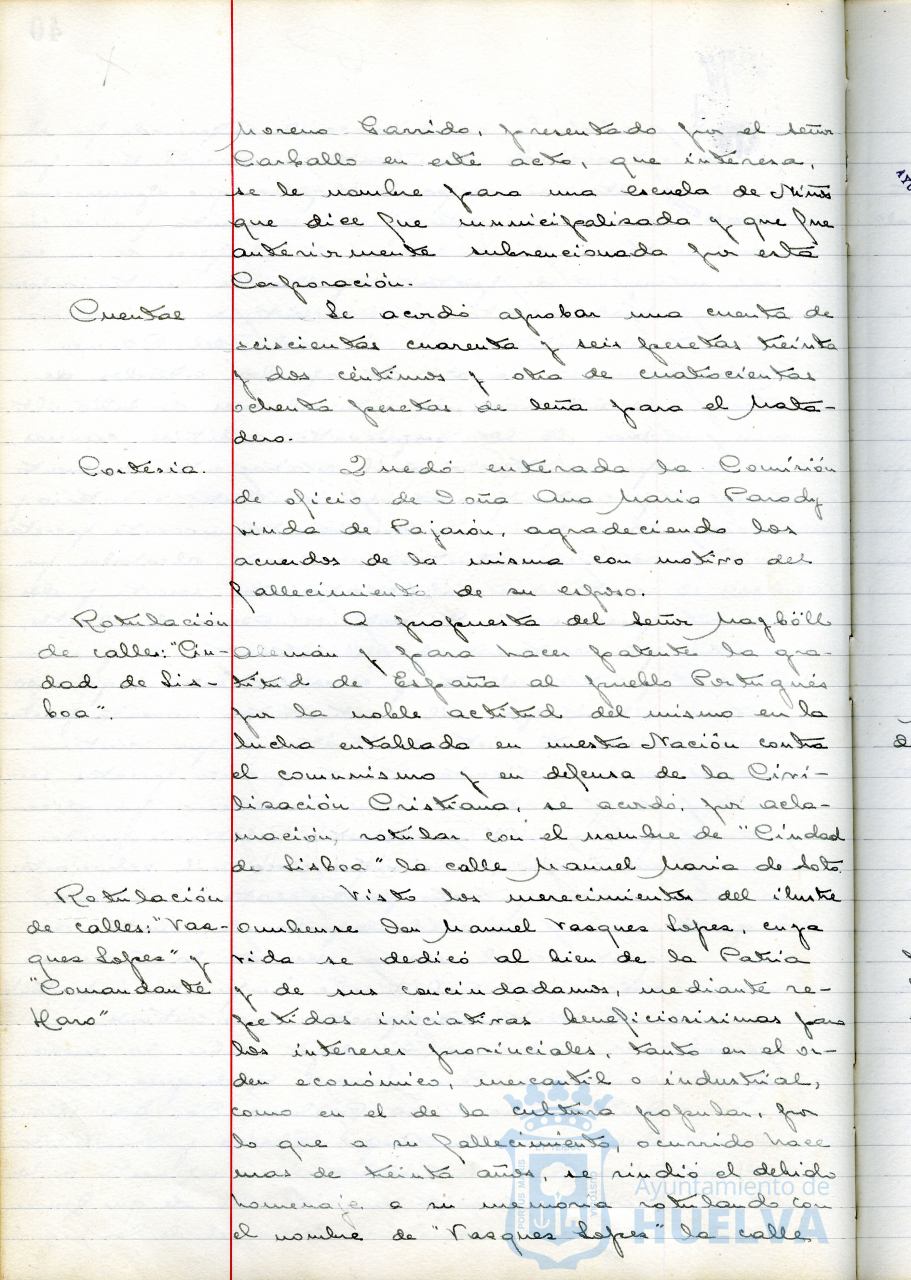 Moreno Garrido, presentado por el señor
Carballo en este acto, que interesa,
se le nombre para una escuela de Niños
que dice fue municipalisada y que fue
anteriormente subvencionada por esta
Corporación.
Cuentas
Se acordó aprobar una cuenta de
seiscientas cuarenta y seis pesetas treinta
y dos céntimos y otra de cuatrocientas
ochenta pesetas de leña para el Mata-
dero.
Cortesia.
Quedó enterada la Comisión
de oficio de Doña Ana Maria Parody
viuda de Pajarón, agradeciendo los
acuerdos de la misma con motivo del
fallecimiento de su esposo.
Rotulación
de calle: "Ciu-
dad de Lis-
boa".
A propuesta del señor Magböll
Alemán y para hacer patente la gra-
titud de España al pueblo Portugués
por la noble actitud del mismo en la
lucha entablada en nuestra Nación contra
el comunismo y en defensa de la Civi-
lisación Cristiana, se acordó, por acla-
mación, rotular con el nombre de "Ciudad
de Lisboa" la calle Manuel Maria de Soto.
Rotulación
de calles: "Vas-
ques Lopes" y
"Comandante
Haro"
Visto los merecimientos del ilustre
onubense Don Manuel Vasques Lopes, cuya
vida se dedicó al bien de la Patria
y de sus conciudadamos, mediante re-
petidas iniciativas beneficiosisimas para
los intereses provinciales, tanto en el or-
den económico, mercantil o industrial,
como en el de la cultura popular, por
lo que a su fallecimiento, ocurrido hace
mas de treinta años, se rindió el debido
homenaje a su memoria rotulando con
el nombre de "Vasques Lopes" la calle
Ayuntamiento de
HUELVA
PORTUS MARIS
ET TERRAE
CUSTODIA